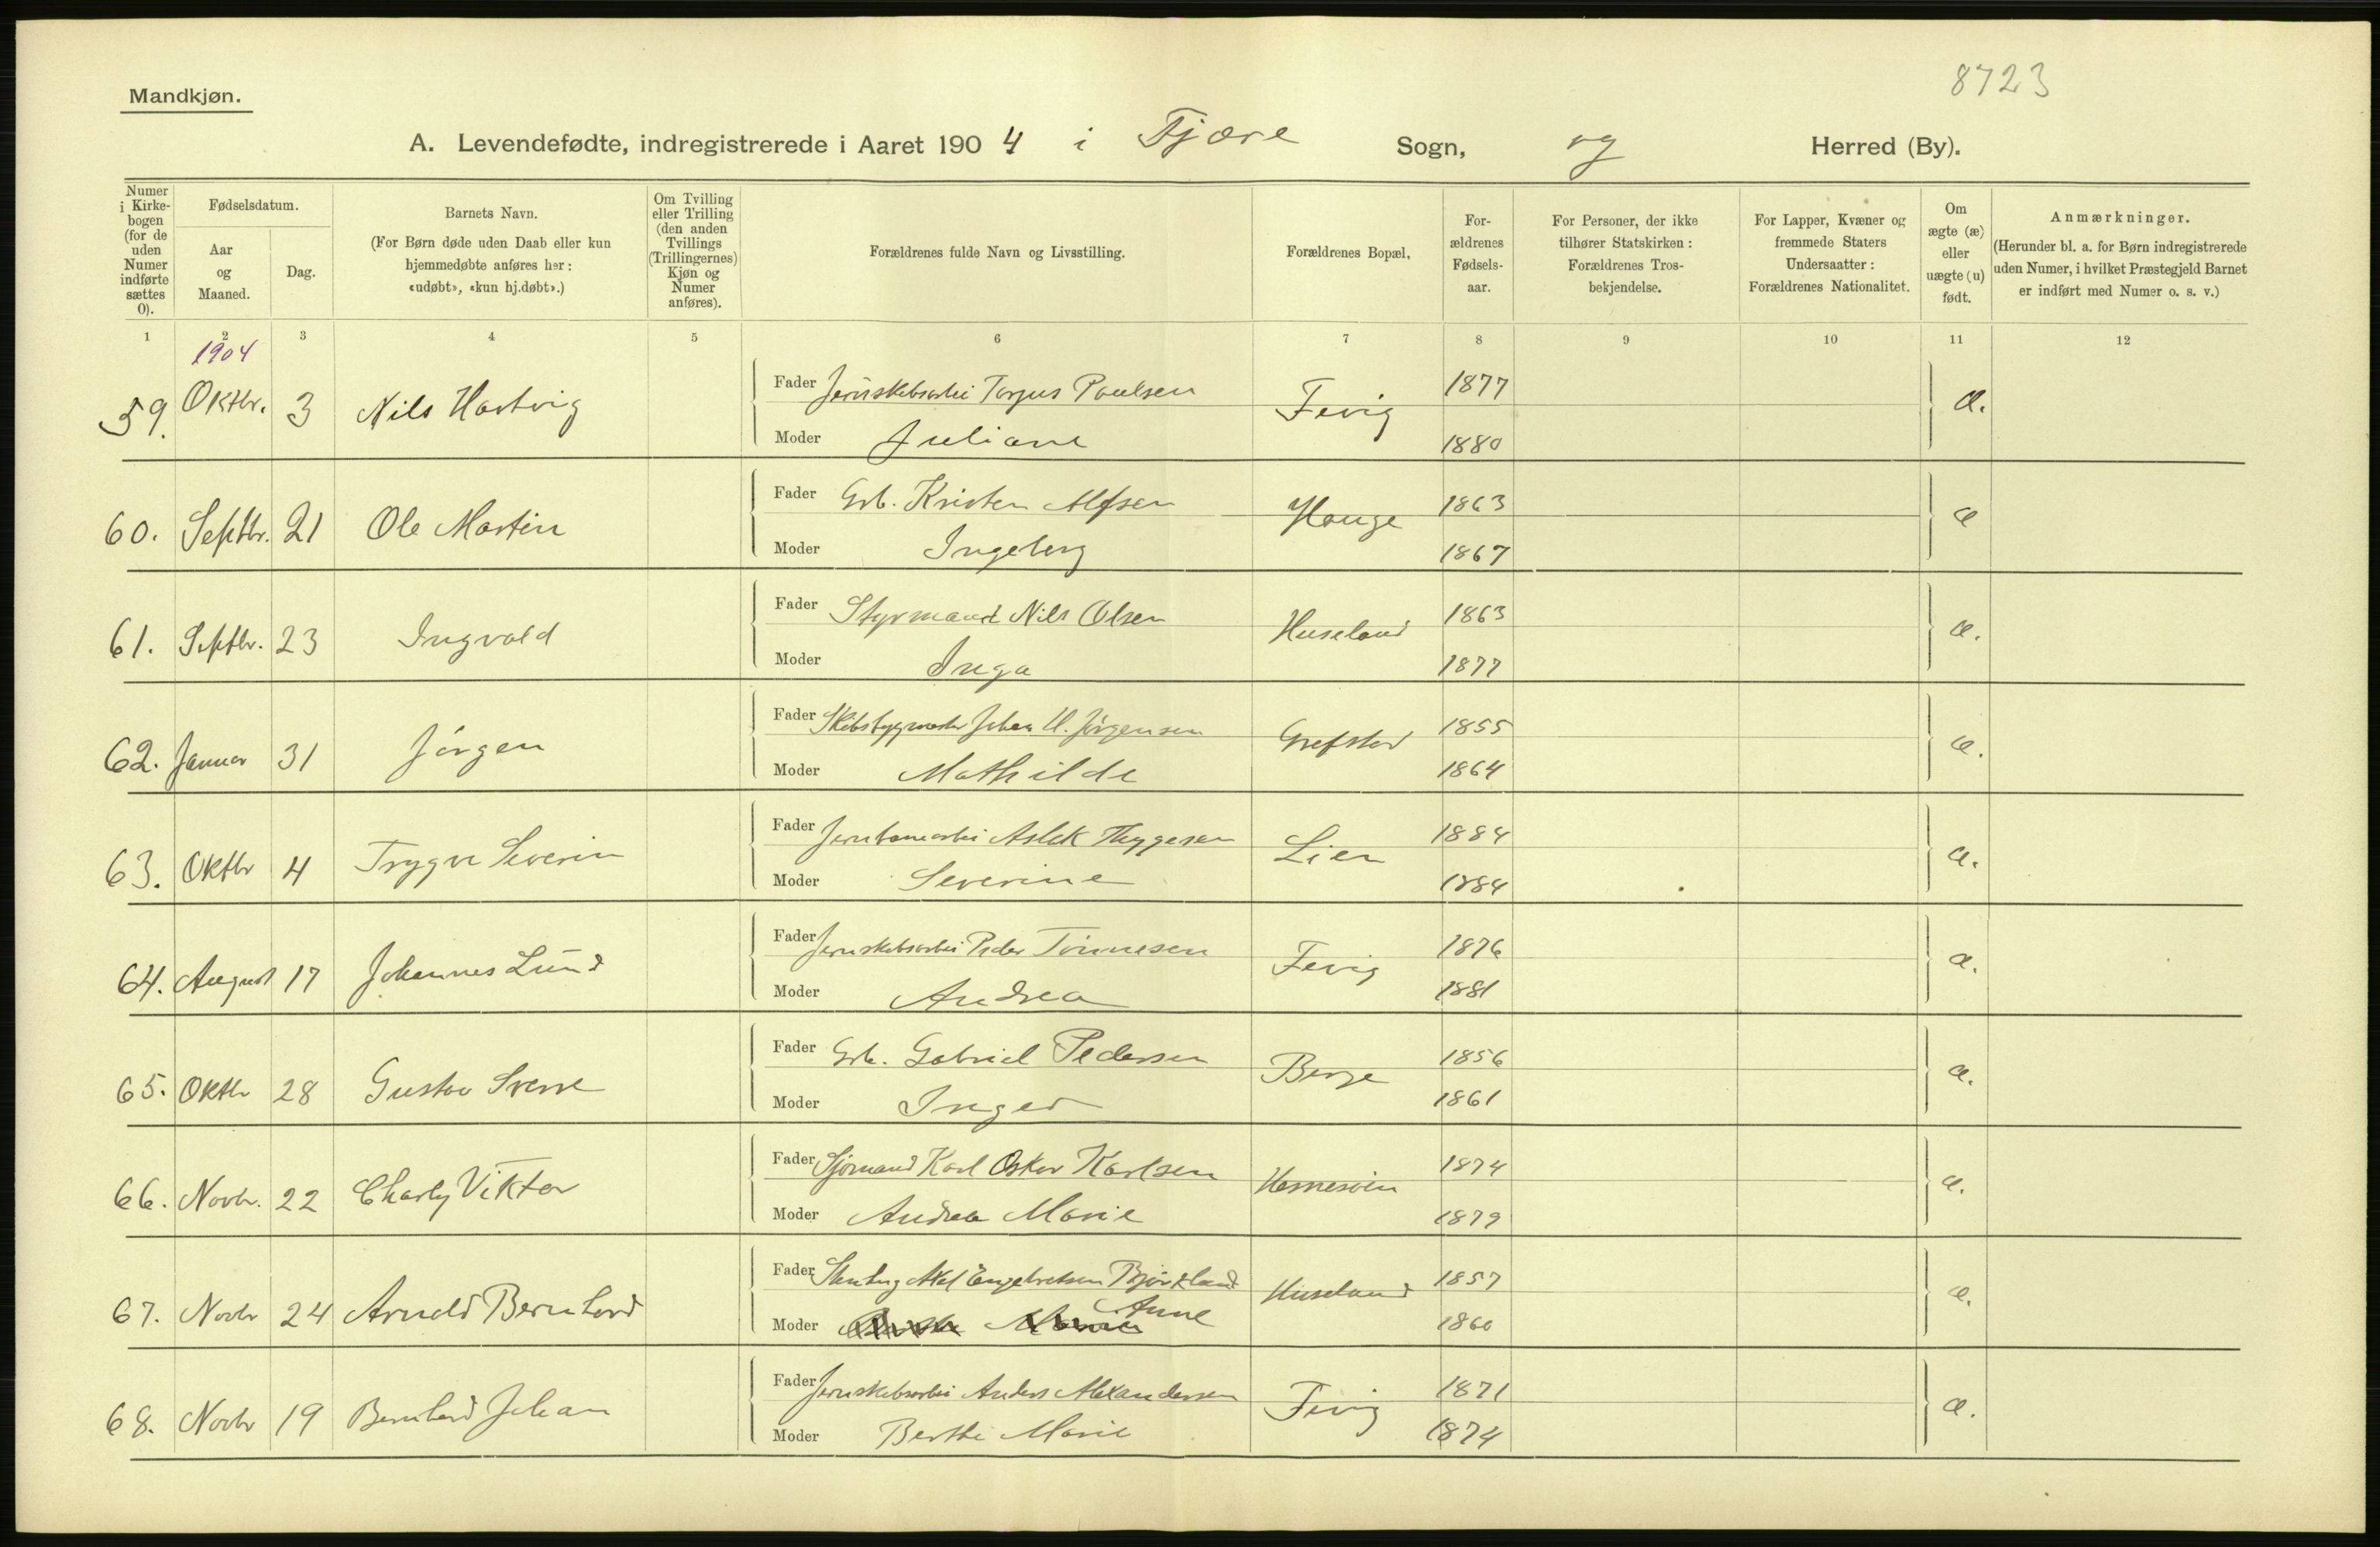 8723
Mandkjøn.
A. Levendefødte, indregistrerede i Aaret 1904 i Fjære Sogn, og Herred (By).
Numer i Kirkebogen (for de uden Numer indførte sættes 0).
Fødselsdatum.
Aar og Maaned.
Dag.
Barnets Navn.
(For Børn døde uden Daab eller kun hjemmedøbte anføres her: «udøbt», «kun hj.døbt».)
Om Tvilling eller Trilling (den anden Tvillings (Trillingernes) Kjøn og Numer anføres).
Forældrenes fulde Navn og Livsstilling.
Forældrenes Bopæl,
Forældrenes Fødselsaar.
For Personer, der ikke tilhører Statskirken: Forældrenes Trosbekjendelse.
For Lapper, Kvæner og fremmede Staters Undersaatter: Forældrenes Nationalitet.
Om ægte (æ) eller uægte (u) født.
Anmærkninger.
(Herunder bl. a. for Børn indregistrerede uden Numer, i hvilket Præstegjeld Barnet er indført med Numer o. s. v.)
1 2 3 4 5 6 7 8 9 10 11 12
1904
59. Oktbr. 3 Nils Hartvig Fader Jernskibsarbei Torjus Paulsen Fevig 1877 æ.
Moder Juliane 1880
60. Septbr. 21 Ole Martin Fader Grb. Kristen Alfsen Hauge 1863 æ
Moder Ingeborg 1867
61. Septbr. 23 Ingvald Fader Styrmand Nils Olsen Huseland 1863 æ.
Moder Inga 1877
62. Januar 31 Jörgen Fader Skibsbyggmester Johan U. Jörgensen Grefstad 1855 æ.
Moder Mathilde 1864
63. Oktbr 4 Trygve Severin Fader Jernbanearbei Aslak Thygesen Lien 1884 æ.
Moder Severine 1884
64. August 17 Johannes Lund Fader Jernskibsarbei Peder Tönnesen Fevig 1876 æ.
Moder Andrea 1881
65. Oktbr 28 Gustav Sverre Fader Grb. Gabriel Pedersen Berge 1856 æ.
Moder Inger 1861
66. Novbr. 22 Charly Viktor Fader Sjömand Karl Oskar Karlsen 1874 æ.
Moder Andrea Marie 1879
67. Novbr 24 Arnold Bernhard Fader Axel Engebretsen Björkland Huseland 1857 æ.
Moder Anne 1860
68. Novbr 19 Bernhard Johan Fader Jernskibsarbei Anders Alexandersen Fevig 1871 æ.
Moder Berthe Marie 1874